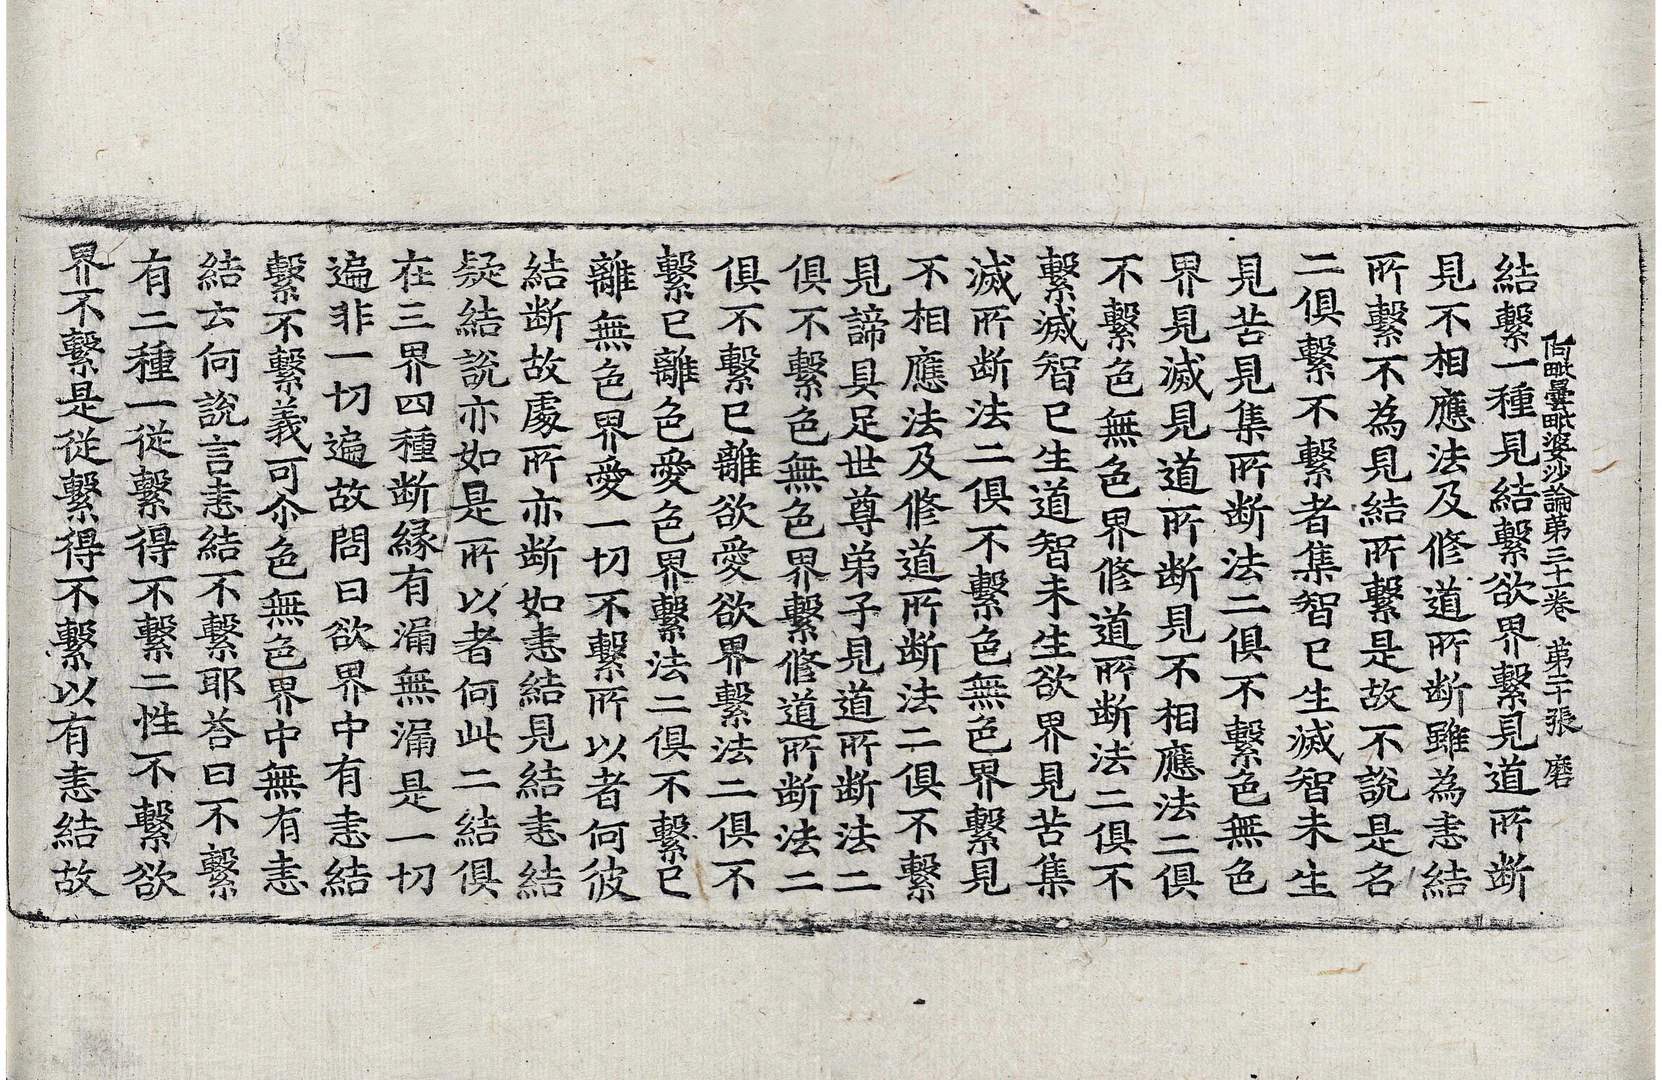 阿毗曇毗婆沙論第三十一卷 第二十張 磨
結繫一種見結繫欲界繫見道所断
見不相應法及修道所断雖為恚結
所繫不為見結所繫是故不說是名
二俱繫不繫者集智已生滅智未生
見苦見集所断法二俱不繫色無色
界見滅見道所断見不相應法二俱
不繫色無色界修道所断法二俱不
繫滅智已生道智未生欲界見苦集
滅所断法二俱不繫色無色界繫見
不相應法及修道所断法二俱不繫
見諦具足世尊弟子見道所断法二
俱不繫色無色界繫修道所断法二
俱不繫已離欲愛欲界繫法二俱不
繫已離色愛色界繫法二俱不繫已
離無色界愛一切不繫所以者何彼
結断故處所亦断如恚結見結恚結
疑結說亦如是所以者何此二結俱
在三界四種断緣有漏無漏是一切
遍非一切遍故問曰欲界中有恚結
繫不繫義可尒色無色界中無有恚
結云何說言恚結不繫耶荅曰不繫
有二種一從繫得不繫二性不繫欲
界不繫是從繫得不繫以有恚結故